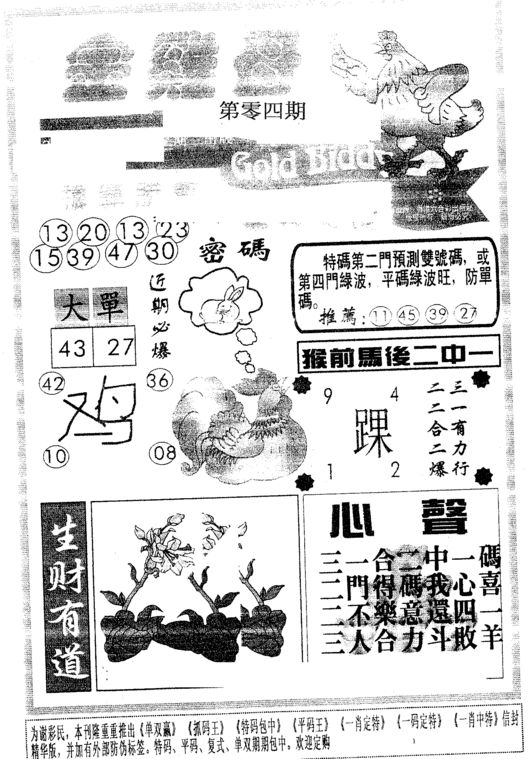 第零四期
Gold Bidd
13 20 13 23
15 39 47 30
密碼
近期必爆
大單
43 27
42 36
鸡
10 08
特碼第二門預測雙號碼，或
第四門綠波，平碼綠波旺，防單
碼。
推薦：11 45 39 27
猴前馬後二中一
9 4
踝
1 2
三一有力行
二二合二爆
生财有道
心聲
三一合二中一碼
二門得碼我心喜
二不樂意還四一
三人合力斗敗羊
为谢彩民，本刊隆重重推出《单双赢》《抓码王》《特码包中》《平码王》《一肖定特》《一码定特》《一肖中特》信封
精华版，并加有外部防伪标签。特码、平码、复式、单双期期包中，欢迎定购